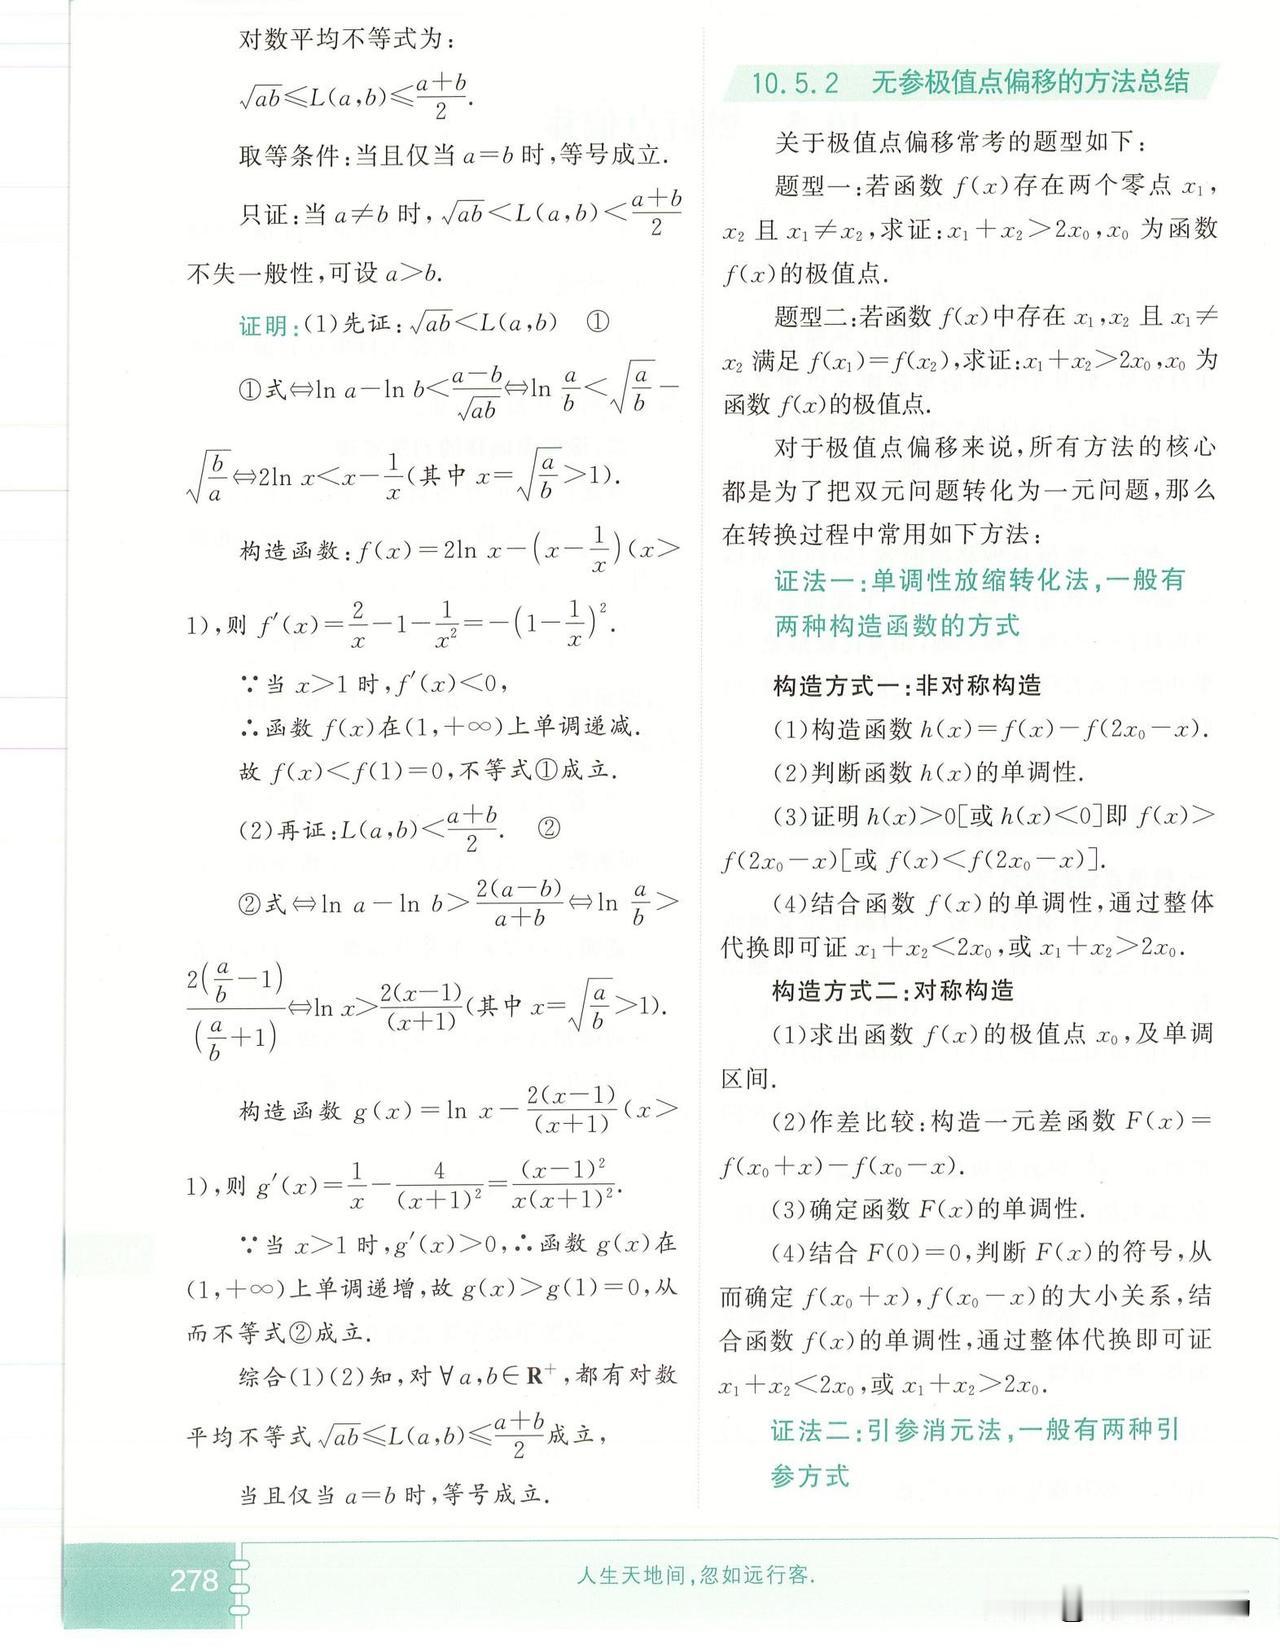 对数平均不等式为：
√ab≤L(a,b)≤(a+b)/2.
取等条件:当且仅当a=b时,等号成立.
只证:当a≠b时,√ab<L(a,b)<(a+b)/2
不失一般性,可设a>b.
证明:(1)先证:√ab<L(a,b) ①
①式⇔ln a-ln b<(a-b)/√ab⇔ln a/b<√(a/b)-
√(b/a)⇔2ln x<x-1/x(其中x=√(a/b)>1).
构造函数:f(x)=2ln x-(x-1/x)(x>
1),则f′(x)=2/x-1-1/x²=-(1-1/x)².
∵当x>1时,f′(x)<0,
∴函数f(x)在(1,+∞)上单调递减.
故f(x)<f(1)=0,不等式①成立.
(2)再证:L(a,b)<(a+b)/2. ②
②式⇔ln a-ln b>2(a-b)/(a+b)⇔ln a/b>
2(a/b-1)/(a/b+1)⇔ln x>2(x-1)/(x+1)(其中x=√(a/b)>1).
构造函数g(x)=ln x-2(x-1)/(x+1)(x>
1),则g′(x)=1/x-4/(x+1)²=(x-1)²/x(x+1)².
∵当x>1时,g′(x)>0,∴函数g(x)在
(1,+∞)上单调递增,故g(x)>g(1)=0,从
而不等式②成立.
综合(1)(2)知,对∀a,b∈R⁺,都有对数
平均不等式√ab≤L(a,b)≤(a+b)/2成立,
当且仅当a=b时,等号成立.
10.5.2 无参极值点偏移的方法总结
关于极值点偏移常考的题型如下：
题型一:若函数f(x)存在两个零点x₁,
x₂且x₁≠x₂,求证:x₁+x₂>2x₀,x₀为函数
f(x)的极值点.
题型二:若函数f(x)中存在x₁,x₂且x₁≠
x₂满足f(x₁)=f(x₂),求证:x₁+x₂>2x₀,x₀为
函数f(x)的极值点.
对于极值点偏移来说,所有方法的核心
都是为了把双元问题转化为一元问题,那么
在转换过程中常用如下方法：
证法一:单调性放缩转化法,一般有
两种构造函数的方式
构造方式一:非对称构造
(1)构造函数h(x)=f(x)-f(2x₀-x).
(2)判断函数h(x)的单调性.
(3)证明h(x)>0[或h(x)<0]即f(x)>
f(2x₀-x)[或f(x)<f(2x₀-x)].
(4)结合函数f(x)的单调性,通过整体
代换即可证x₁+x₂<2x₀,或x₁+x₂>2x₀.
构造方式二:对称构造
(1)求出函数f(x)的极值点x₀,及单调
区间.
(2)作差比较:构造一元差函数F(x)=
f(x₀+x)-f(x₀-x).
(3)确定函数F(x)的单调性.
(4)结合F(0)=0,判断F(x)的符号,从
而确定f(x₀+x),f(x₀-x)的大小关系,结
合函数f(x)的单调性,通过整体代换即可证
x₁+x₂<2x₀,或x₁+x₂>2x₀.
证法二:引参消元法,一般有两种引
参方式
278
人生天地间,忽如远行客.